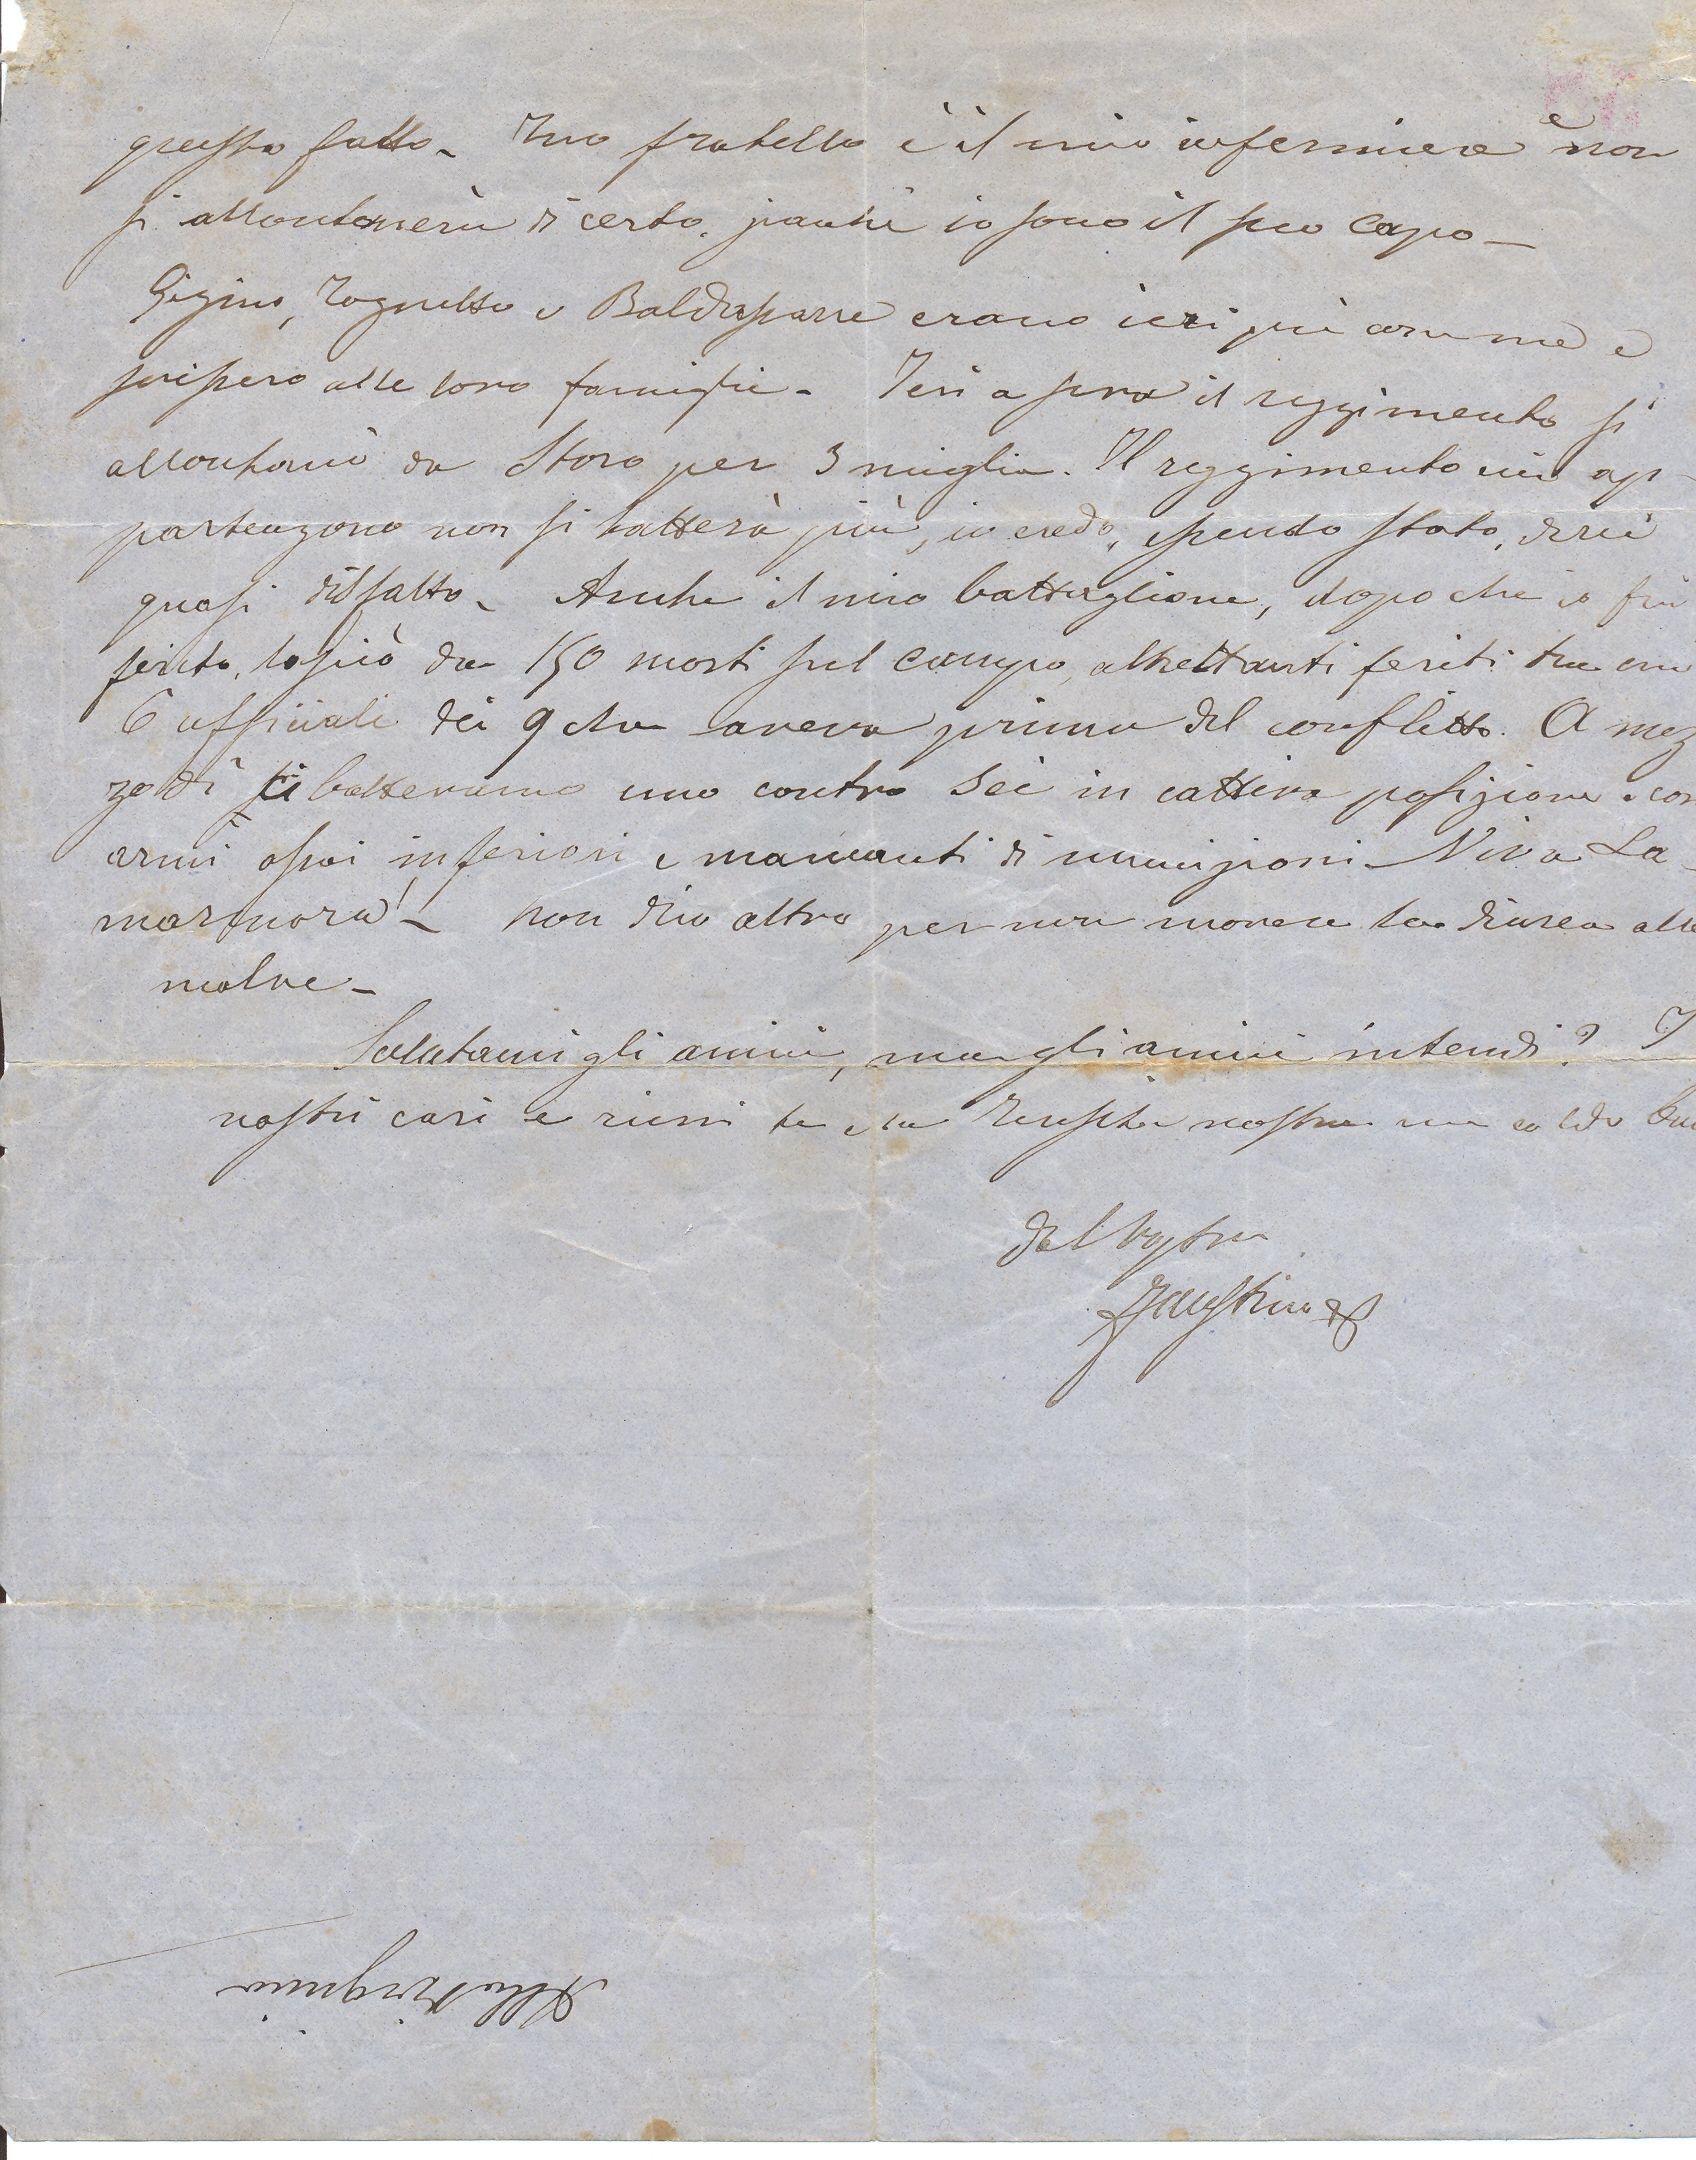 questo fatto. Tuo fratello è il mio infermiere e non
si allontanerà di certo, perchè io sono il suo Capo –
Gigino, Tognetto e Baldassarre erano ieri qui con me e
scrissero alle loro famiglie – Ieri a sera il reggimento si
allontanò da Storo per 3 miglia. Il reggimento cui ap-
partengono non si batterà più, io credo, essendo stato, direi
quasi disfatto – Anche il mio battaglione, dopo che io fui
ferito, lasciò da 150 morti sul campo, altrettanti feriti tra cui
6 ufficiali dei 9 che aveva prima del conflitto. A mez
zodì ci battevamo uno contro sei in cattiva posizione e con
armi assai inferiori e mancanti di munizioni – Viva La-
marmora! – Non dico altro per non movere la diarea alle
malve –
Salutami gli amici, ma gli amici intendi? I
nostri cari e ricevi te e la nostra un caldo
dal vostro
Faustino
Alla Virginia